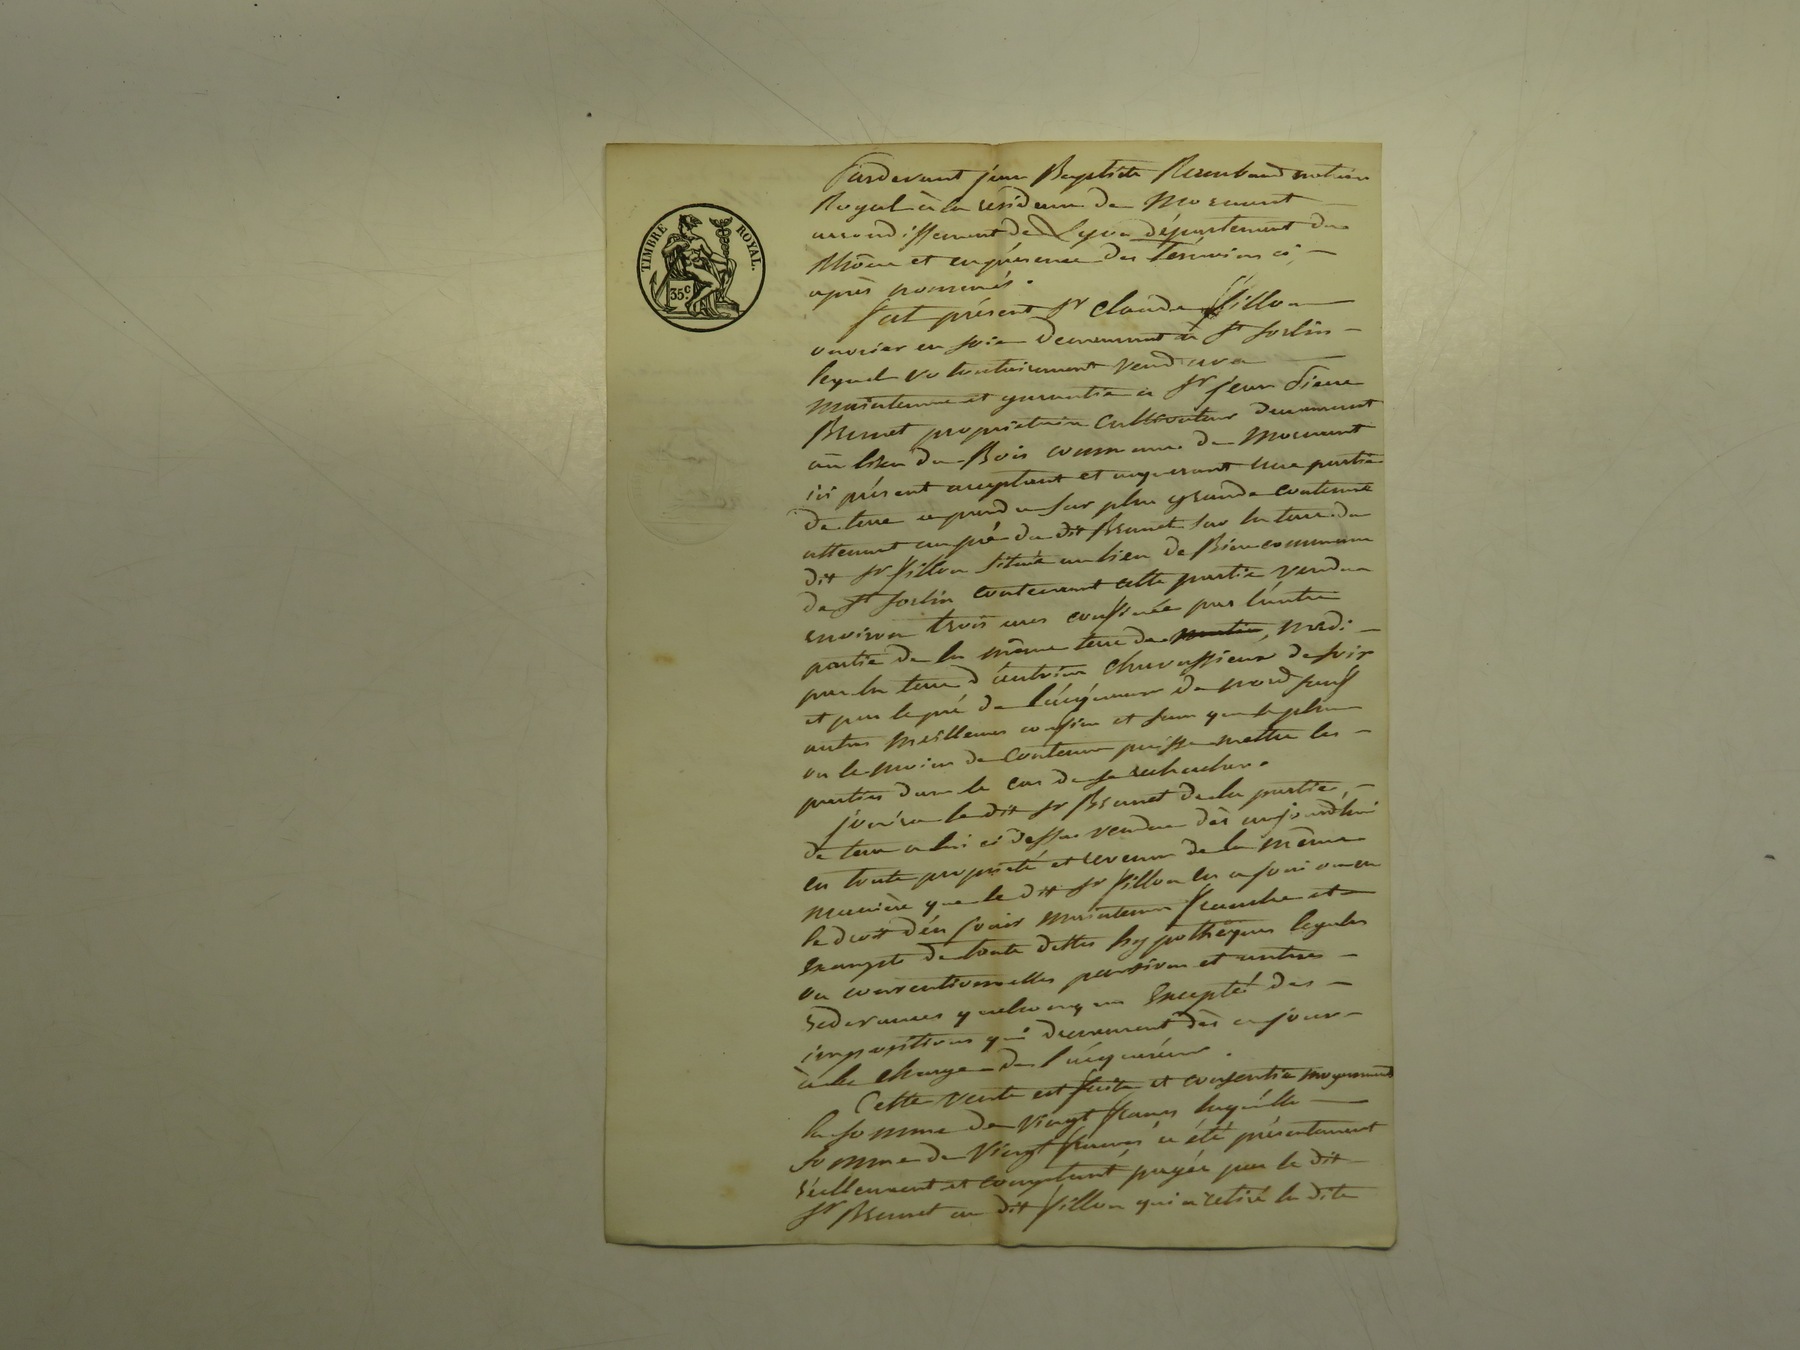 TIMBRE ROYAL.
35 c.
Pardevant jean Baptiste Rambaud notaire
Royal à la résidence de Mornant
arrondissement de Lyon département du
Rhône et en présence des Témoins ci,
après nommés.
fut présent Sr Claude fillon
ouvrier en soie demeurant à St Sorlin
lequel volontairement vend avec
maintenue et garantie à Sr jean Pierre
Brunet propriétaire cultivateur demeurant
au lieu du Bois commune de Mornant
ici présent acceptant et acquérant une partie
de terre à prendre sur plus grande contenue
attenant au pré du dit Brunet sur la terre du
dit Sr fillon située au lieu de commune
de St Sorlin contenant cette partie vendue
environ trois ares confinée par l'autre
partie de la même terre de matin, midi
par la terre d'antoine Chavassieux de soir
et par le pré de l'acquéreur de nord sauf
autres meilleurs confins et sans que le plus
ou le moins de contenue puisse mettre les
parties dans le cas de se rechercher.
jouira le dit Sr Brunet de la partie,
de terre a lui ci dessus vendue dès aujourd'hui
en toute propriété et revenu de la même
manière que le dit Sr fillon en a joui ou eu
le droit d'en jouir maintenue franche et
exempte de toute dettes hypothèques légales
ou conventionnelles pension et autres
redevances quelconques Excepté des
impositions qui demeurent dès ce jour
à la charge de l'acquéreur.
Cette vente est faite et consentie moyennant
la somme de vingt francs laquelle
somme de vingt francs a été présentement
réellement et comptant payée par le dit
Sr Brunet au dit fillon qui a retiré la dite